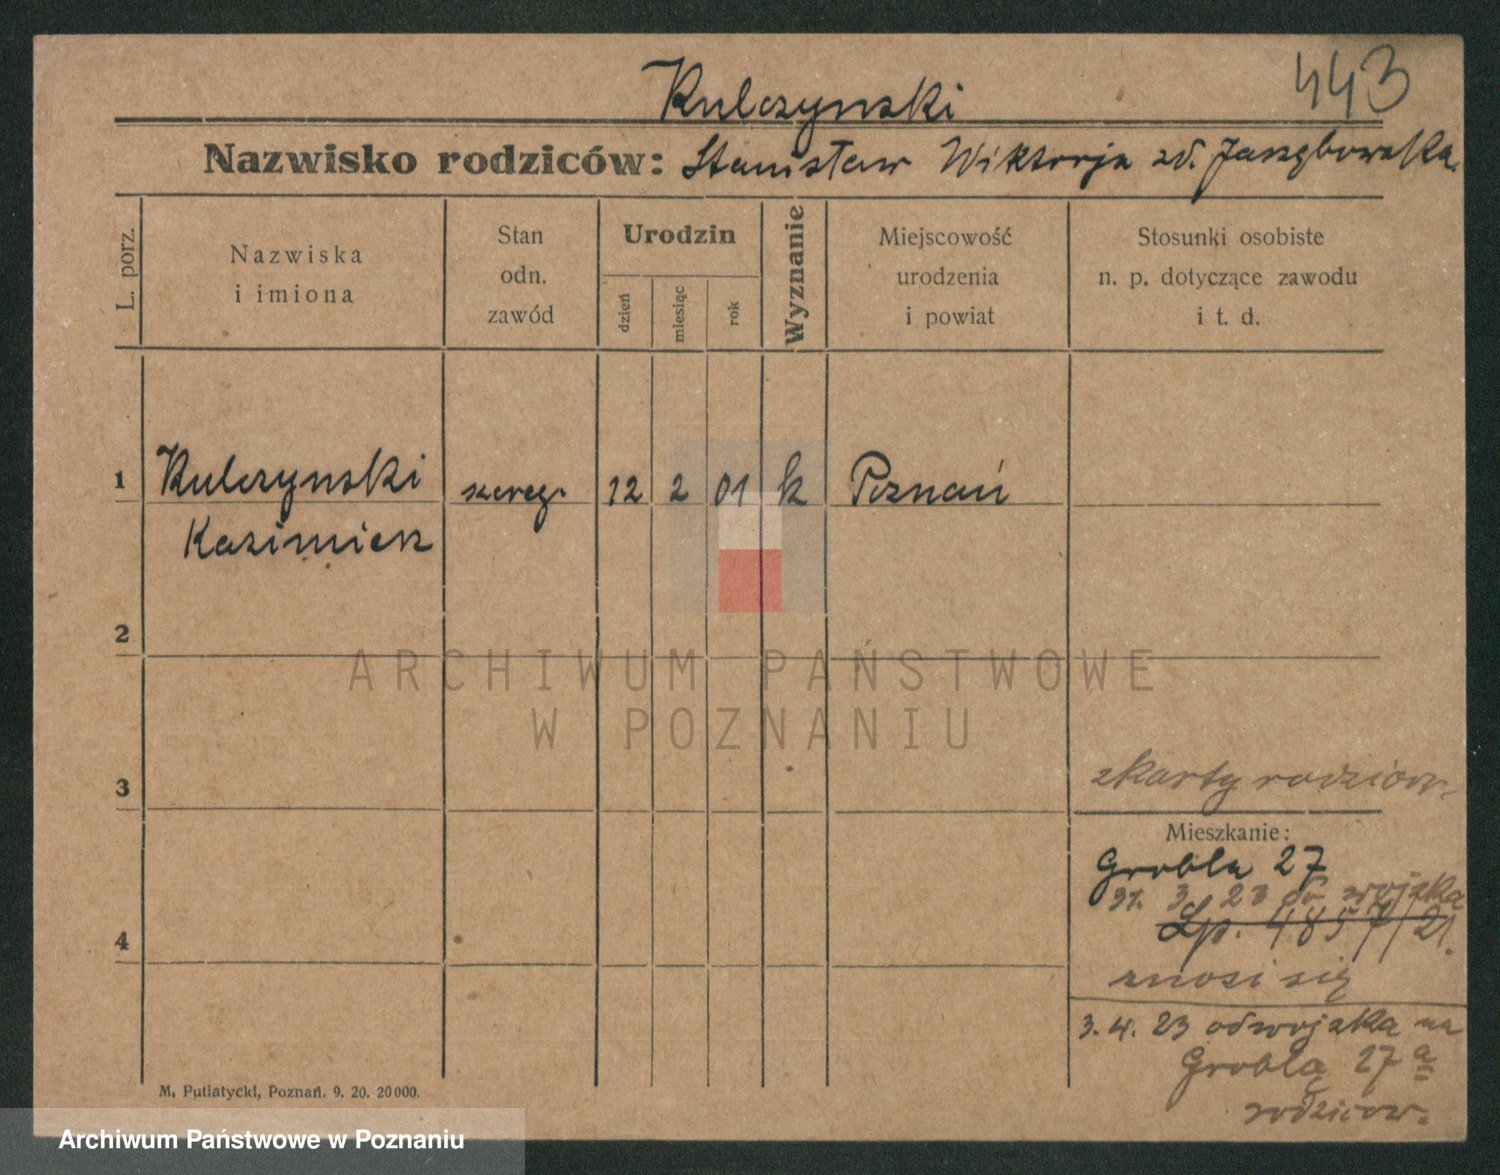 Kulczynski
443
Nazwisko rodziców: Stanisław Wiktorja zd.
L. porz.
Nazwiska
i imiona
Stan
odn.
zawód
Urodzin
dzień
miesiąc
rok
Wyznanie
Miejscowość
urodzenia
i powiat
Stosunki osobiste
n. p. dotyczące zawodu
i t. d.
1
Kulczynski
szereg.
12
2
01
k
Poznań
Kazimierz
2
ARCHIWUM PAŃSTWOWE
W POZNANIU
3
z karty rodziców.
Mieszkanie:
Grobla 27
31. 3. 23 do wojska
Lp. 4857/21.
znosi się
4
3. 4. 23 od wojska na
Groblą 27 a
rodziców.
M. Putiatycki, Poznań. 9. 20. 20000.
Archiwum Państwowe w Poznaniu